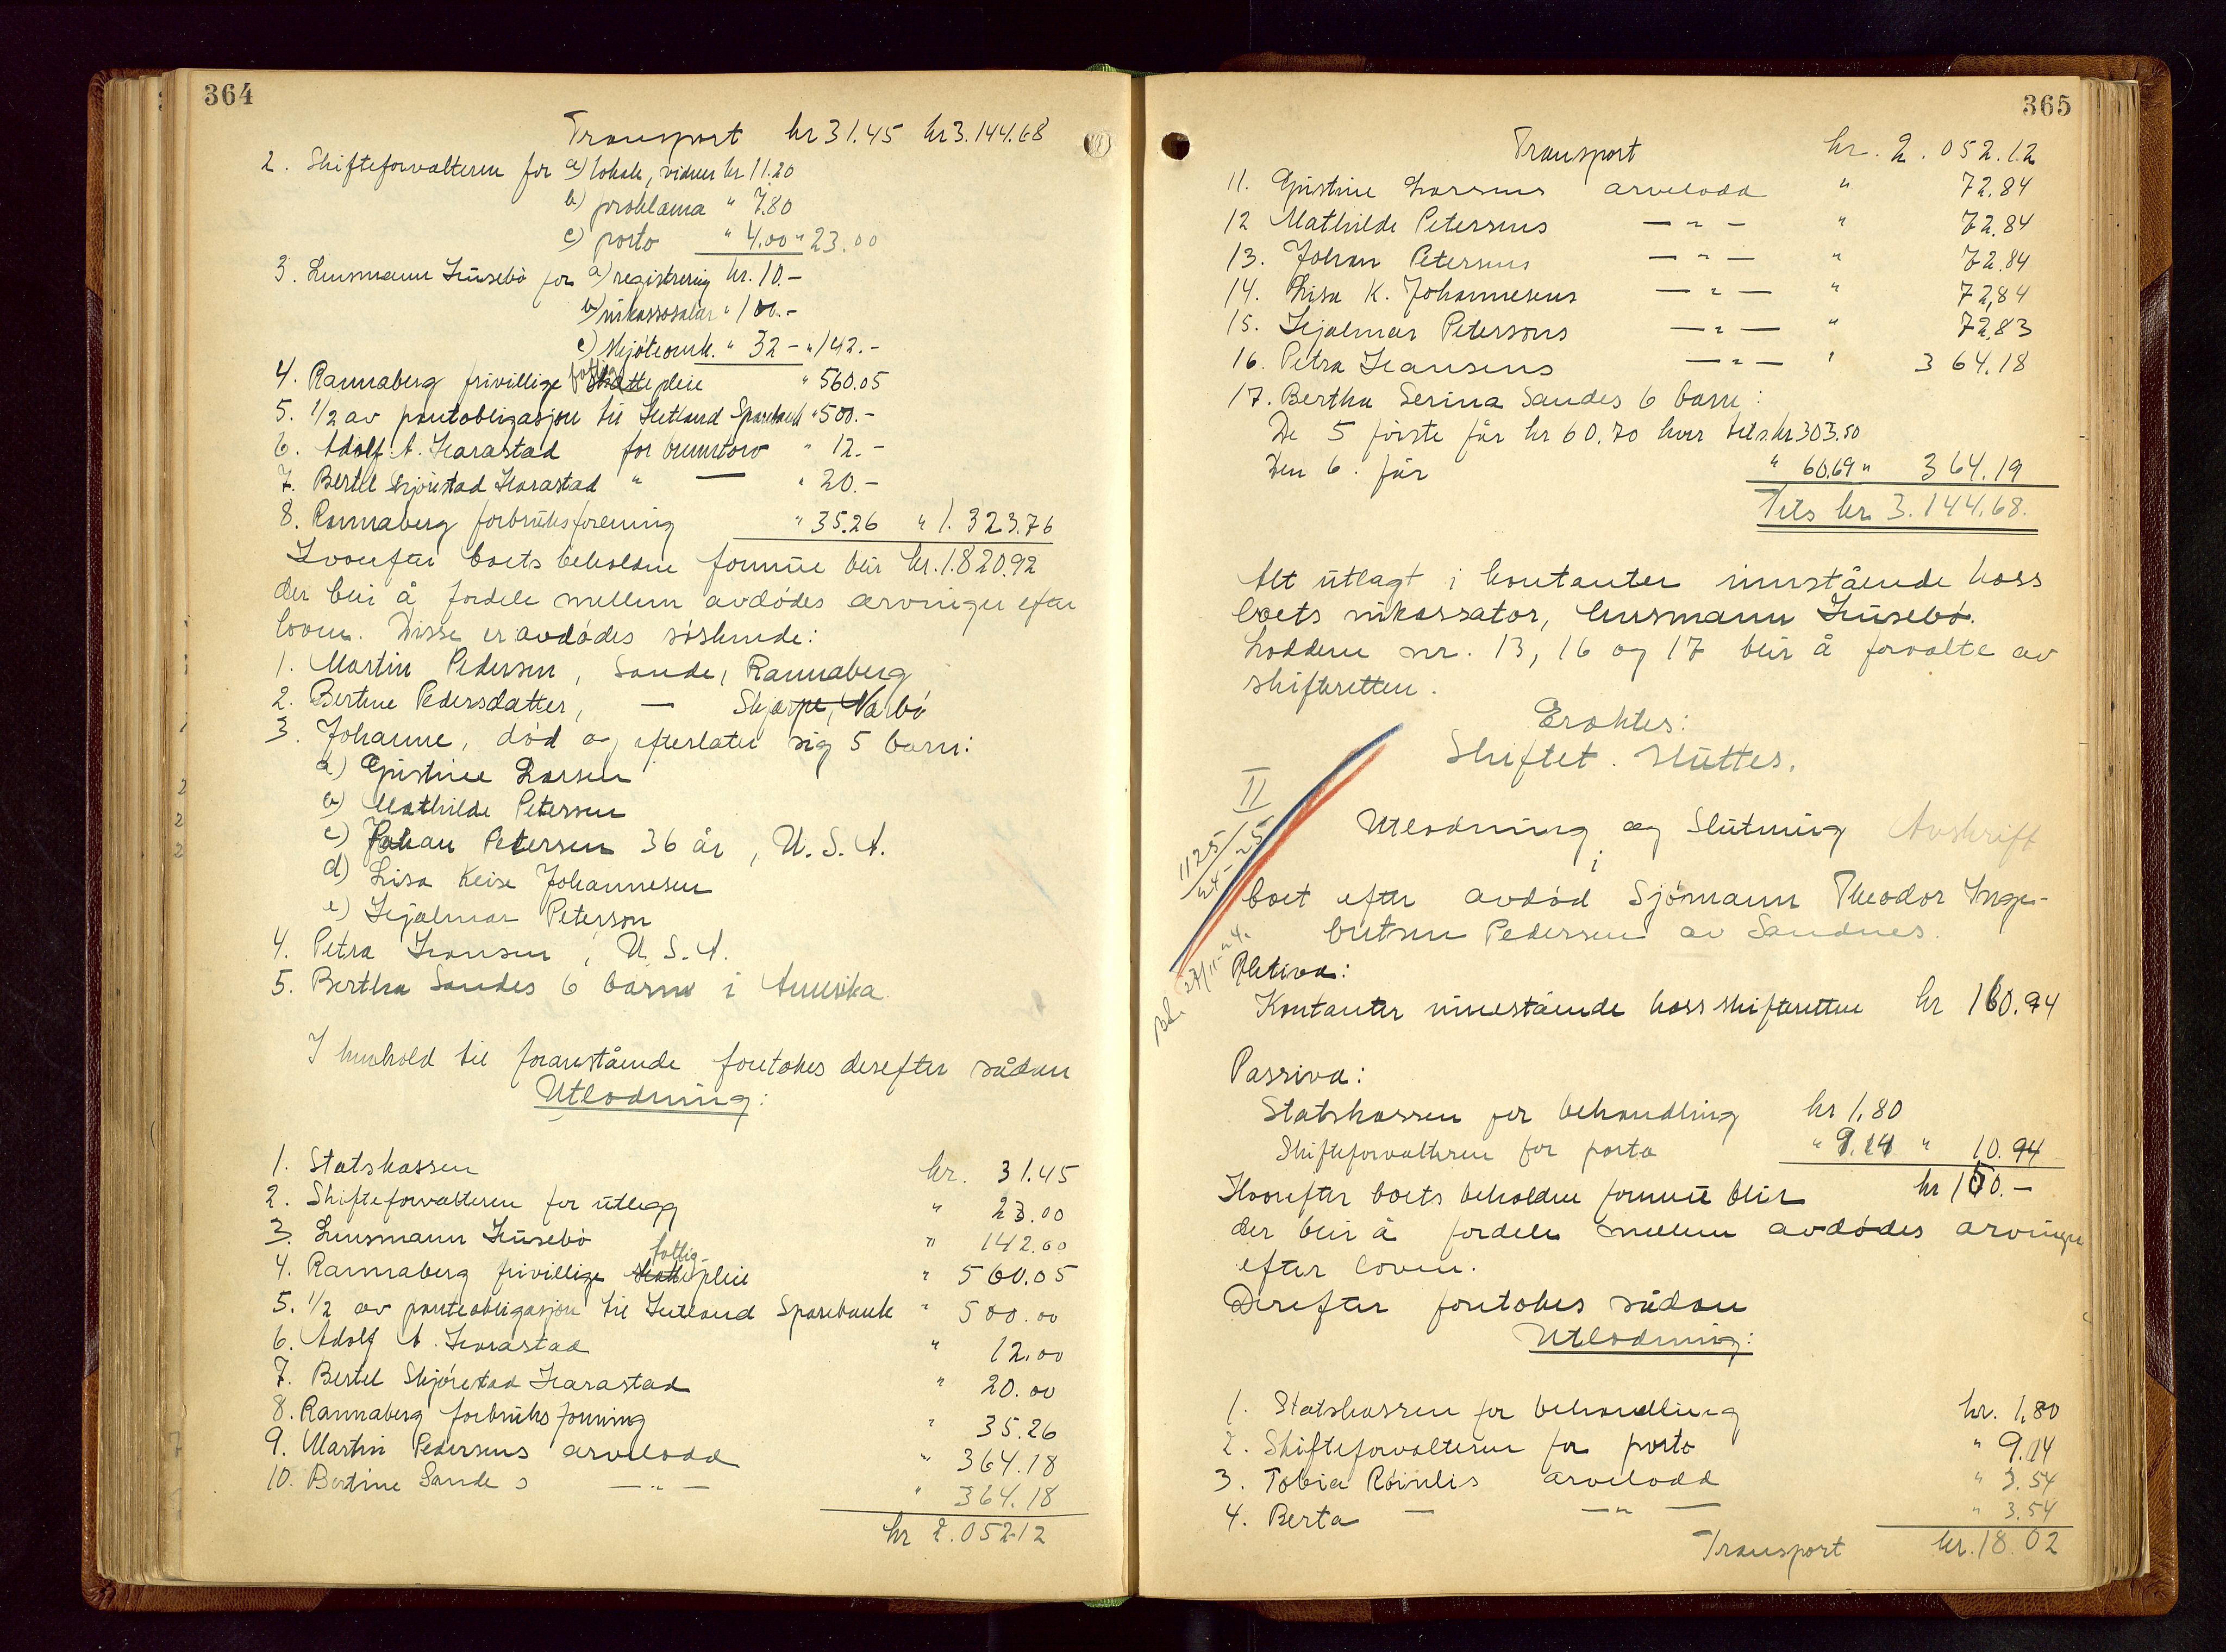 364
Transport kr 31.45 kr 3.144.68
2. Skifteforvalteren for a) lokale, vidner kr 11.20
b) proklama " 7.80
c) porto " 4.00 " 23.00
3. Lensmann Husebø for a) registrering kr. 10.-
b) inkassosalær " 100.-
c) skjøteomk. " 32 - " 142.-
4. Rannaberg frivillige fattigpleie " 560.05
5. 1/2 av pantobligasjon til Hetland Sparebank " 500.-
6. Adolf A. Harastad for brenntorv " 12.-
7. Bertel Skjørestad Harastad " — " 20.-
8. Rannaberg forbruksforening " 35.26 " 1.323.76
Hvorefter boets beholdne formue blir kr. 1.820.92
der blir å fordele mellem avdødes arvinger efter
loven. Disse er avdødes søskende:
1. Martin Pedersen, Sande, Rannaberg
2. Bertine Pedersdatter, — Skjarpe, Varbø
3. Johanne, død og efterlater sig 5 barn:
a) Gjistine Larsen
b) Mathilde Petersen
c) Johan Petersen 36 år, U.S.A.
d) Lisa Keise Johannesen
e) Hjalmar Peterson
4. Petra Hansen, U.S.A.
5. Bertha Sandes 6 barn i Amerika.
I henhold til foranstående foretokes derefter sådan
Utlodning:
1. Statskassen kr. 31.45
2. Skifteforvalteren for utlegg " 23.00
3. Lensmann Husebø " 142.00
4. Rannaberg frivillige fattigpleie " 560.05
5. 1/2 av panteobligasjon til Hetland Sparebank " 500.00
6. Adolf A. Harastad " 12.00
7. Bertel Skjørestad Harastad " 20.00
8. Rannaberg forbruksforening " 35.26
9. Martin Pedersens arvelodd " 364.18
10. Bertine Sandes — " — " 364.18
kr 2.052.12
365
Transport kr. 2.052.12
11. Gjistine Larsens arvelodd " 72.84
12 Mathilde Petersens — " — " 72.84
13. Johan Petersens — " — " 72.84
14. Lisa K. Johannesens — " — " 72,84
15. Hjalmar Petersons — " — " 72,83
16. Petra Hansens — " — " 364.18
17. Bertha Serina Sandes 6 barn:
De 5 første får kr 60.70 hver tils. kr 303.50
Den 6. får " 60.69 " 364.19
Tils kr 3.144.68.
Alt utlagt i kontanter innestående hoss
boets inkassator, lensmann Husebø.
Loddene nr. 13, 16 og 17 blir å forvalte av
skifteretten.
Eraktes:
Skiftet sluttes.
II
1125/24-25
Utlodning og Slutning Avskrift
i
boet efter avdød Sjømann Theodor Inge-
bretsen Pedersen av Sandnes.
27/11-24.
Aktiva:
Kontanter innestående hoss skifteretten kr 160.94
Passiva:
Statskassen for behandling kr 1,80
Skifteforvalteren for porto " 9.14 " 10.94
Hvorefter boets beholdne formue blir kr 150.-
der blir å fordele mellem avdødes arvinger
efter loven.
Derefter foretokes sådan
Utlodning:
1. Statskassen for behandling kr. 1,80
2. Skifteforvalteren for porto " 9.14
3. Tobia Røinlis arvelodd " 3.54
4. Berta — — " — " 3.54
Transport kr. 18.02